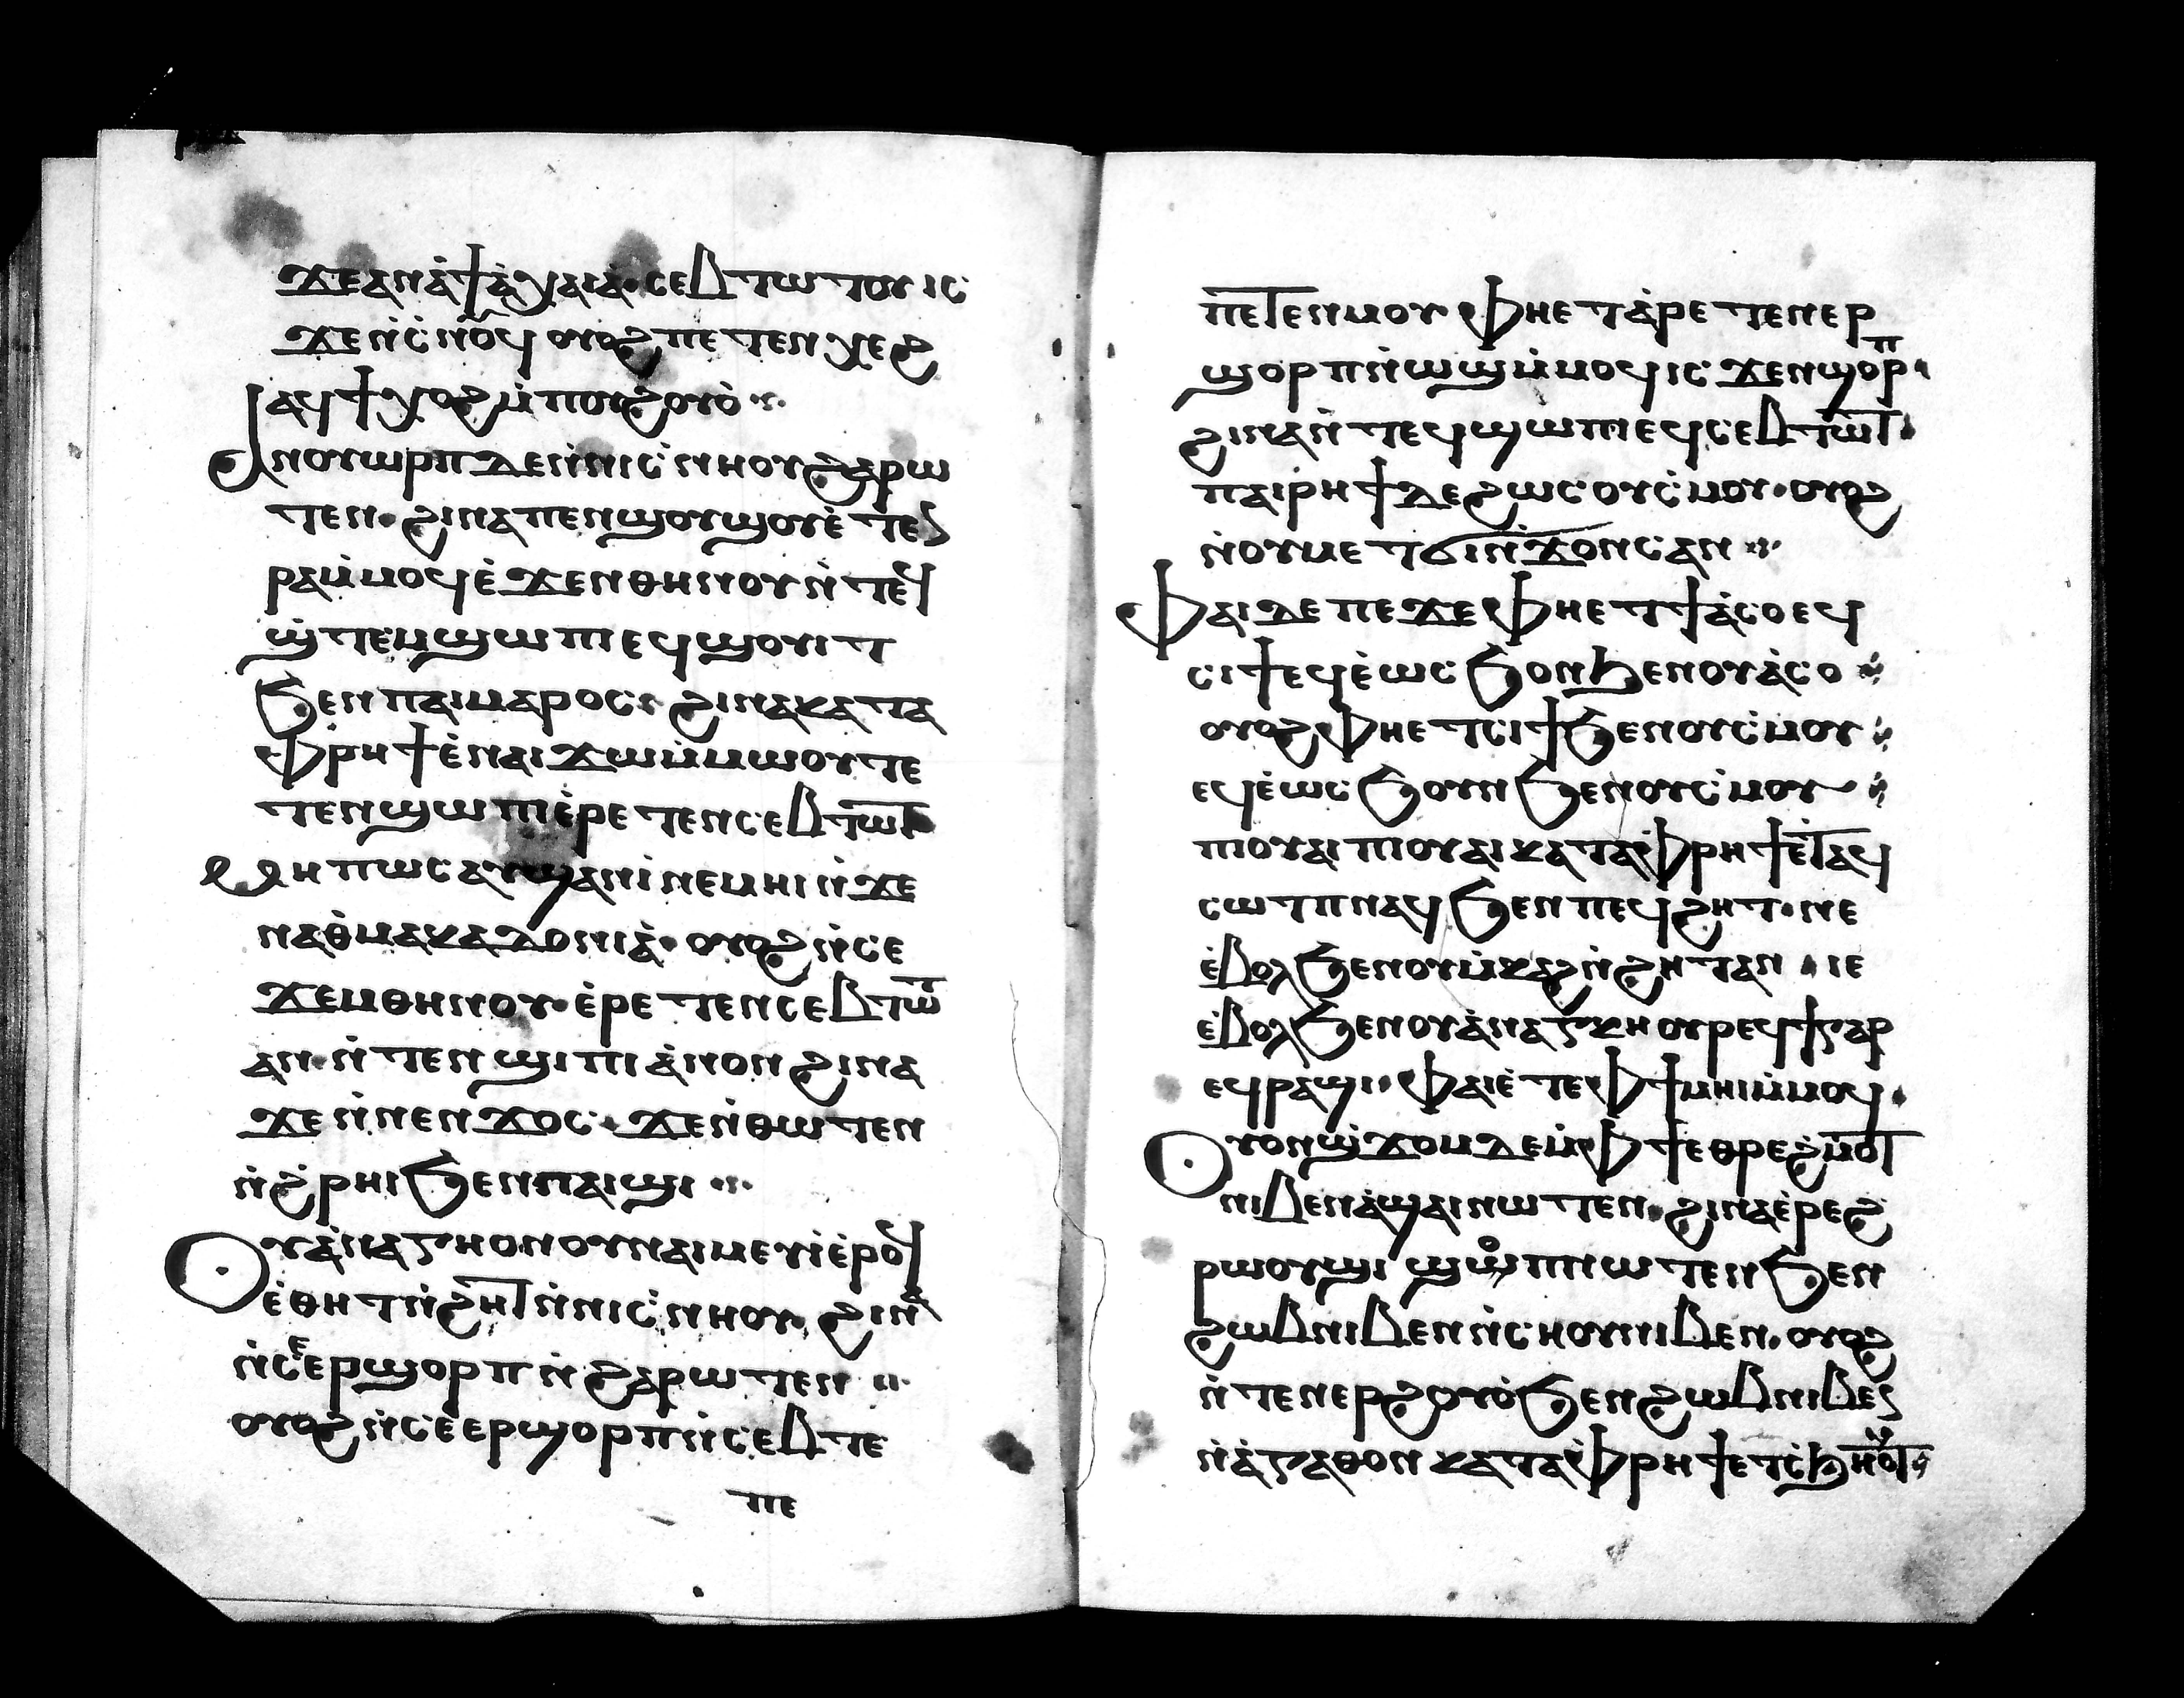 ϫⲉⲁⲛⲁ̀ϯⲁ̀ⲭⲁⲓⲁ̀·ⲥⲉⲃⲧⲱⲧⲟⲩⲓⲥ
ϫⲉⲛⲥ̀ⲛⲟⲩϥ ⲟⲩⲟϩ ⲡⲉⲧⲉⲛⲭⲉϩ
ⲁϥϯⲭⲟϩⲙ̀ⲡⲟⲩϩⲟⲩⲟ̀
Ⲁⲓⲛⲟⲩⲱⲣⲡⲇⲉⲛ̀ⲛⲓⲥ̀ⲛⲏⲟⲩϩⲁⲣⲱ
ⲧⲉⲛ·ϩⲓⲛⲁⲡⲉⲛϣⲟⲩϣⲟⲩⲉ̀ⲧⲉⲛ
ⲣⲁⲙ̀ⲙⲟϥⲉ̀ϫⲉⲛⲑⲏⲛⲟⲩⲛ̀ⲧⲉϥ
ϣ̀ⲧⲉⲙϣⲱⲡⲓⲉϥϣⲟⲩⲓⲧ
ϧⲉⲛⲡⲁⲓⲙⲁⲣⲟⲥ· ϩⲓⲛⲁⲕⲁⲧⲁ
ⲫ̀ⲣⲏϯⲉ̀ⲛⲁⲓϫⲱⲙ̀ⲙⲱⲟⲩⲧⲉ
ⲧⲉⲛϣⲱⲡⲓⲉ̀ⲣⲉⲧⲉⲛⲥⲉⲃⲧⲱⲧ
Ⲙⲏⲡⲱⲥⲁⲩϣⲁⲛⲓ̀ⲛⲉⲙⲏⲓⲛ̀ϫⲉ
ⲛⲁⲑ̀ⲙⲁⲕⲁⲇⲟⲛⲓⲁ̀· ⲟⲩⲟϩⲛ̀ⲥⲉ
ϫⲉⲙⲑⲏⲛⲟⲩ·ⲉ̀ⲣⲉⲧⲉⲛⲥⲉⲃⲧⲱⲧ
ⲁⲛ·ⲛ̀ⲧⲉⲛϣⲓⲡⲓⲁ̀ⲛⲟⲛϩⲓⲛⲁ
ϫⲉⲛ̀ⲛⲉⲛϫⲟⲥ·ϫⲉⲛ̀ⲑⲱⲧⲉⲛ
ⲛ̀ϩ̀ⲣⲏⲓϧⲉⲛⲡⲁⲓϣⲓ
Ⲟⲩⲁ̀ⲛⲁⲅⲕⲏⲟⲛⲟⲩⲛⲁⲓⲙⲉⲩⲓ̀ⲉ̀ⲣⲟϥ
ⲉ̀ⲑⲏⲧⲛ̀ϩⲏⲧⲛ̀ⲛⲓⲥ̀ⲛⲏⲟⲩ· ϩⲓⲛⲁ
ⲛ̀ⲥⲉⲉⲣϣⲟⲣⲡⲛ̀ϩⲁⲣⲱⲧⲉⲛ
ⲟⲩⲟϩⲛ̀ⲥⲉⲉⲣϣⲟⲣⲡⲛ̀ⲥⲉⲃⲧⲉ
ⲡⲉ
ⲡⲉⲧⲉⲛⲙⲟⲩ ⲫⲏⲉⲧⲁ̀ⲣⲉⲧⲉⲛⲉⲣ
ϣⲟⲣⲡⲛ̀ⲱϣⲙ̀ⲙⲟϥⲓⲥϫⲉⲛϣⲟⲣⲡ·
ϩⲓⲛⲁⲛ̀ⲧⲉϥϣⲱⲡⲓⲉϥⲥⲉⲃⲧⲱⲧ·
ⲡⲁⲓⲣⲏϯⲇⲉϩⲱⲥⲟⲩⲥ̀ⲙⲟⲩ·ⲟⲩⲟϩ
ⲛ̀ⲟⲩⲙⲉⲧϭⲓⲛ̀ϫⲟⲛⲥⲁⲛ
Ⲫⲁⲓⲇⲉⲡⲉϫⲉⲫⲏⲉⲧϯⲁ̀ⲥⲟⲉϥ
ⲥⲓϯⲉϥⲉ̀ⲱⲥϧⲟⲛϧⲉⲛⲟⲩⲁ̀ⲥⲟ
ⲟⲩⲟϩⲫⲏⲉⲧⲥⲓϯϧⲉⲛⲟⲩⲥ̀ⲙⲟⲩ
ⲉϥⲉ̀ⲱⲥϧⲟⲩⲛϧⲉⲛⲟⲩⲥ̀ⲙⲟⲩ
ⲡⲓⲟⲩⲁⲓⲡⲓⲟⲩⲁⲓⲕⲁⲧⲁⲫ̀ⲣⲏϯⲉ̀ⲧⲁϥ
ⲥⲱⲧⲡⲛⲁϥϧⲉⲛⲡⲉϥϩⲏⲧ·ⲛⲉ
ⲉ̀ⲃⲟⲗϧⲉⲛⲟⲩⲙ̀ⲕⲁϩⲛ̀ϩⲏⲧⲁⲛ · ⲓⲉ
ⲉ̀ⲃⲟⲗϧⲉⲛⲟⲩⲁ̀ⲛⲁⲅⲕⲏⲟⲩⲣⲉϥϯⲅⲁⲣ
ⲉϥⲣⲁϣⲓ·ⲫⲁⲓⲉ̀ⲧⲉⲫϯⲙⲏⲓⲙ̀ⲙⲟϥ·
Ⲟⲩⲟⲛϣ̀ϫⲟⲙⲇⲉⲙ̀ⲫϯⲉⲑⲣⲉϩ̀ⲙⲟⲧ
ⲛⲓⲃⲉⲛⲁ̀ϣⲁⲓⲛⲱⲧⲉⲛ·ϩⲓⲛⲁⲉ̀ⲣⲉϩ
ⲣⲱⲟⲩϣⲓ ϣⲱⲟⲡⲛⲱⲧⲉⲛϧⲉⲛ
ϩⲱⲃⲛⲓⲃⲉⲛⲛ̀ⲥⲏⲟⲩⲛⲓⲃⲉⲛ·ⲟⲩⲟϩ
ⲛ̀ⲧⲉⲛⲉⲣϩⲟⲩⲟ̀ϧⲉⲛϩⲱⲃⲛⲓⲃⲉⲛ
ⲛ̀ⲁ̀ⲅⲁⲑⲟⲛⲕⲁⲧⲁⲫ̀ⲣⲏϯⲉⲧⲥ̀ϧⲏⲟⲩⲧ